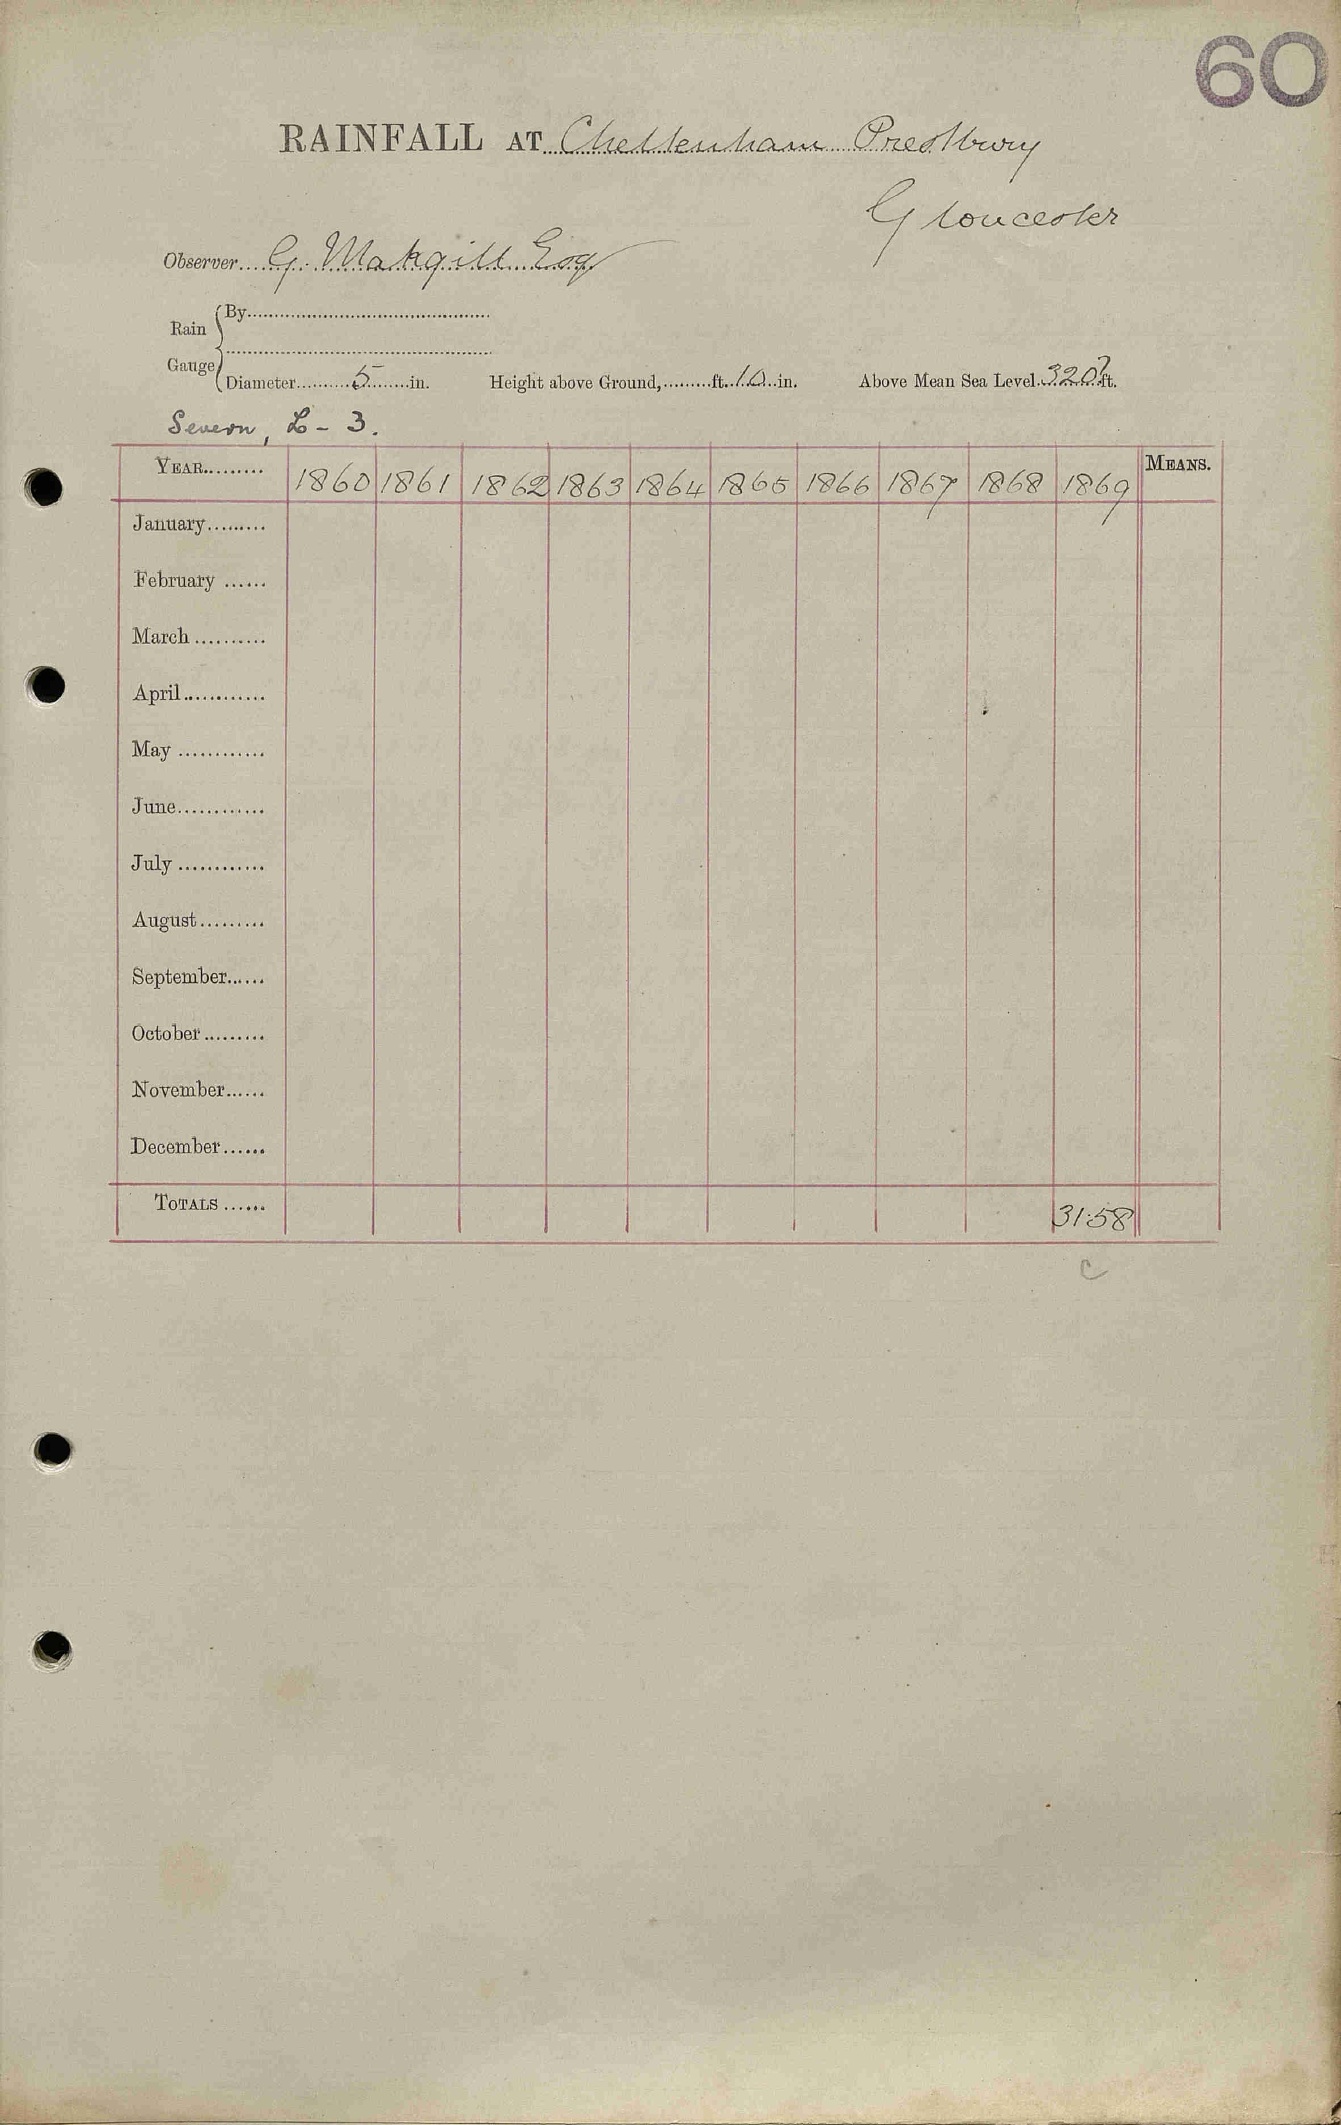 60
RAINFALL AT Cheltenham Prestbury
Gloucester
Observer G. Makgill Esq
Rain Gauge
By
Diameter 5 in. Height above Ground, ft. 10 in. Above Mean Sea Level 320? ft.
Severn, L - 3.
YEAR 1860 1861 1862 1863 1864 1865 1866 1867 1868 1869 MEANS.
January
February
March
April
May
June
July
August
September
October
November
December
TOTALS 31.58
C